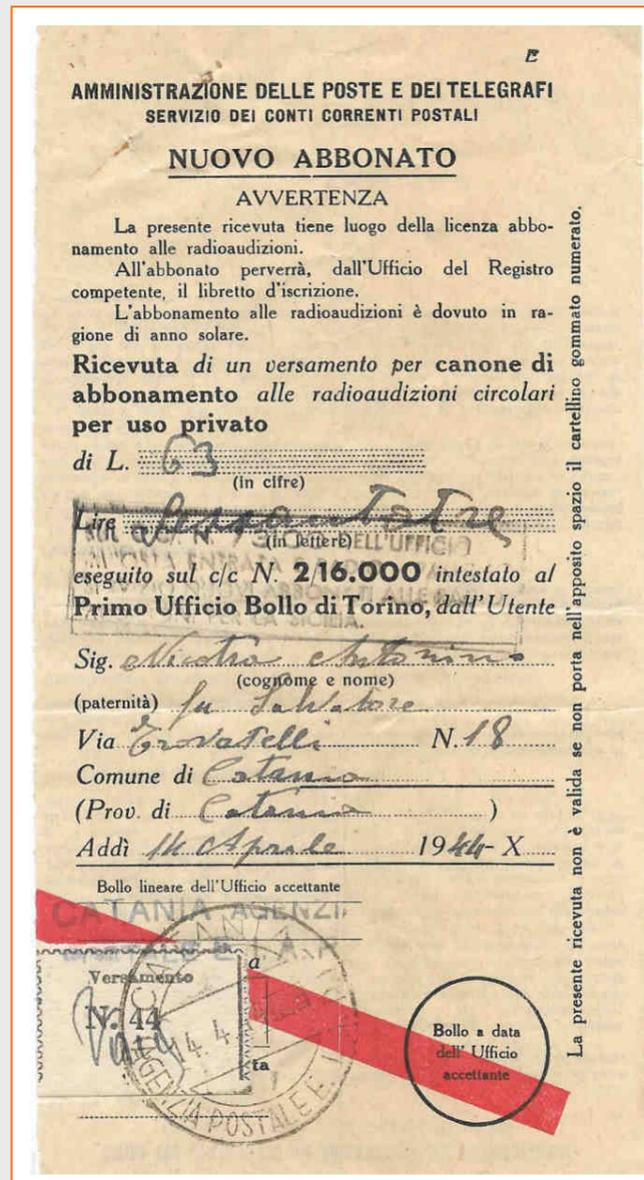 E
AMMINISTRAZIONE DELLE POSTE E DEI TELEGRAFI
SERVIZIO DEI CONTI CORRENTI POSTALI
NUOVO ABBONATO
AVVERTENZA
La presente ricevuta tiene luogo della licenza abbo-
namento alle radioaudizioni.
All'abbonato perverrà, dall'Ufficio del Registro
competente, il libretto d'iscrizione.
L'abbonamento alle radioaudizioni è dovuto in ra-
gione di anno solare.
Ricevuta di un versamento per canone di
abbonamento alle radioaudizioni circolari
per uso privato
di L. 63
(in cifre)
Lire Sessantatre
(in lettere)
DELL'UFFICIO
PER LA SICILIA.
eseguito sul c/c N. 2/16.000 intestato al
Primo Ufficio Bollo di Torino, dall'Utente
Sig. Nicotra Antonino
(cognome e nome)
(paternità) fu Salvatore
Via Trovatelli N. 18
Comune di Catania
(Prov. di Catania )
Addì 14 Aprile 1944-X
Bollo lineare dell'Ufficio accettante
CATANIA AGENZI
Versamento
N. 44
a
ta
CATANIA
14.4
AGENZIA POSTALE E
Bollo a data
dell' Ufficio
accettante
La presente ricevuta non è valida se non porta nell'apposito spazio il cartellino gommato numerato.